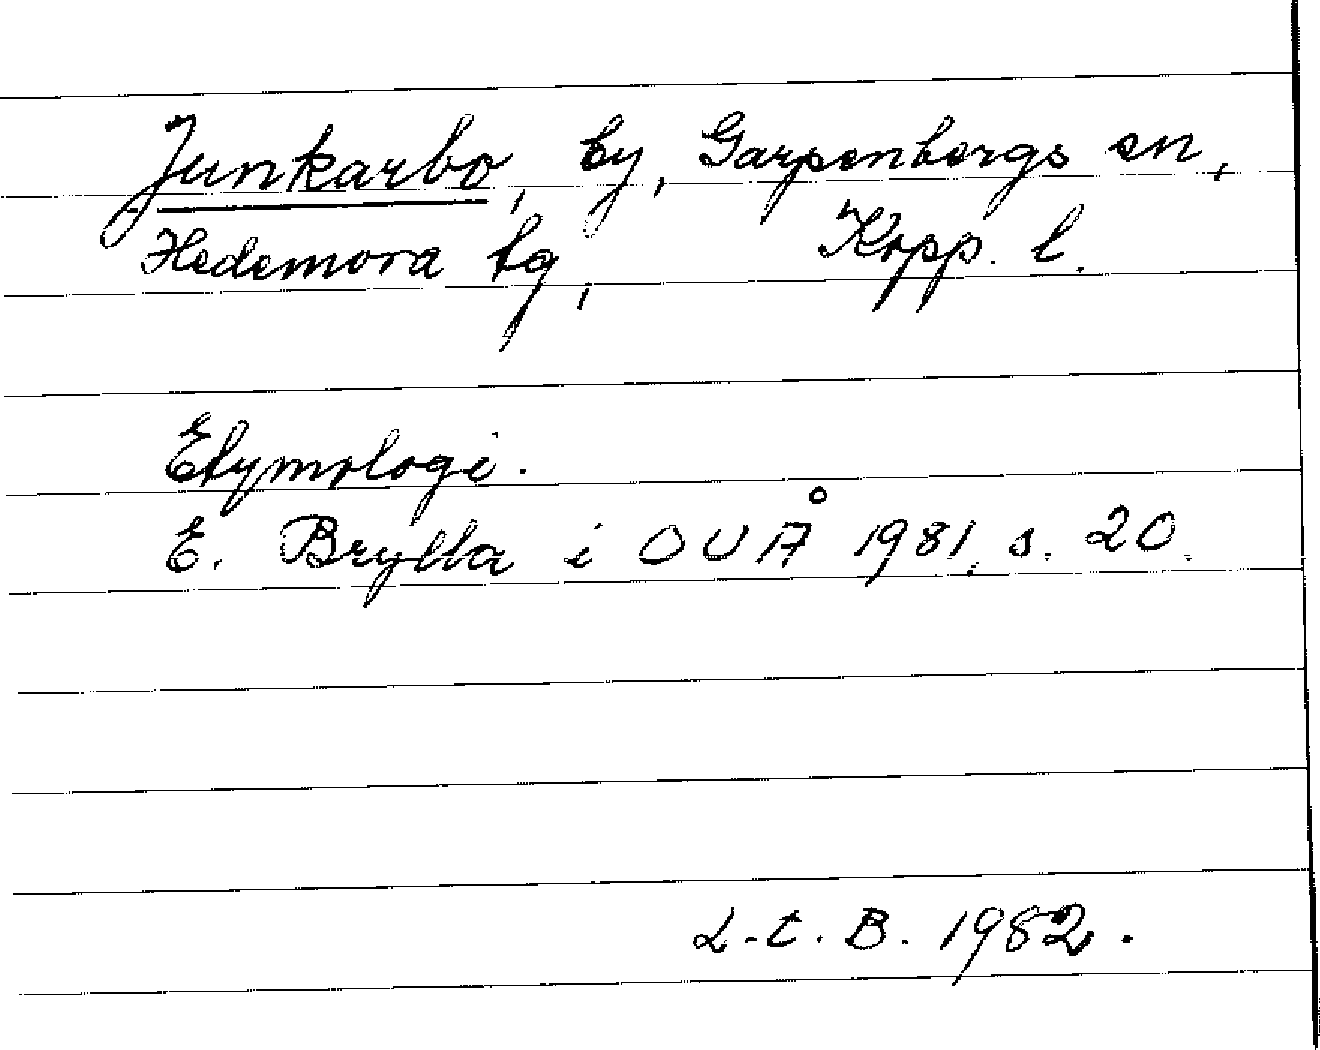 Junkarbo, by, Garpenbergs sn,
Hedemora tg, Kopp. l.
Etymologi.
E. Brylla i OUÅ 1981, s. 20.
L-t. B. 1982.